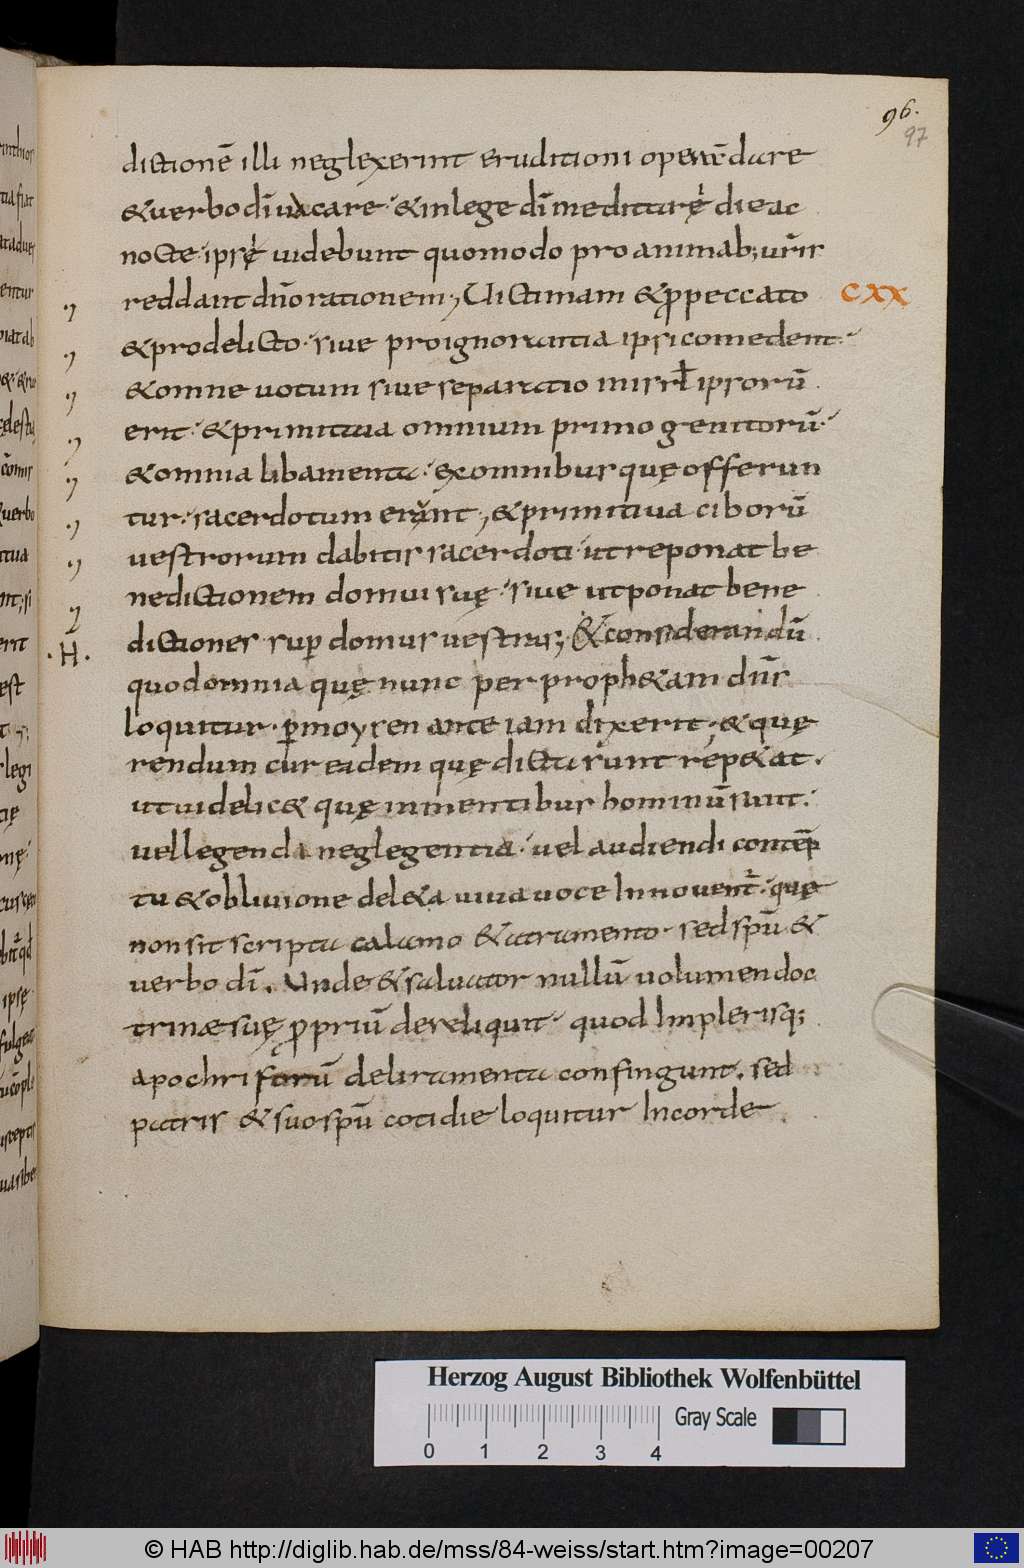 96.
97
dictionē illi neglexerint eruditioni operā dare
& uerbo dī uacare · & in lege dī meditari die ac
nocte · ipsi uidebunt quomodo pro animab; uris
reddant dn̄o rationem; Uictimam & p peccato CXX
& pro delicto · siue pro ignorantia ipsi comedent ·
& omne uotum siue separatio misrł ipsorū
erit · & primitiua omnium primogenitorū ·
& omnia libamenta · ex omnibus quę offerun
tur · sacerdotum erunt; & primitiua ciborū
uestrorum dabitis sacerdoti · ut reponat be
nedictionem domui suę · siue ut ponat bene
dictiones sup domus uestras; & considerandū
·H·
quod omnia quę nunc per proph&am dn̄s
loquitur · p moysen ante iam dixerit; & quę
rendum cur eadem quę dicta sunt rep&at ·
ut uidelic& quę in mentibus hominū sunt ·
uel legendi neglegentia · uel audiendi contēp
tu & obliuione del&a uiua uoce Innouent · quę
non sit scripta calamo & atramento · sed spū &
uerbo dī. Unde & saluator nullū uolumen doc
trinæ suę propriū dereliquit · quod In plerisq;
apochriforū deliramenta confingunt. sed
patris & suo spū cotidie loquitur In corde
Herzog August Bibliothek Wolfenbüttel
Gray Scale
0 1 2 3 4
© HAB http://diglib.hab.de/mss/84-weiss/start.htm?image=00207